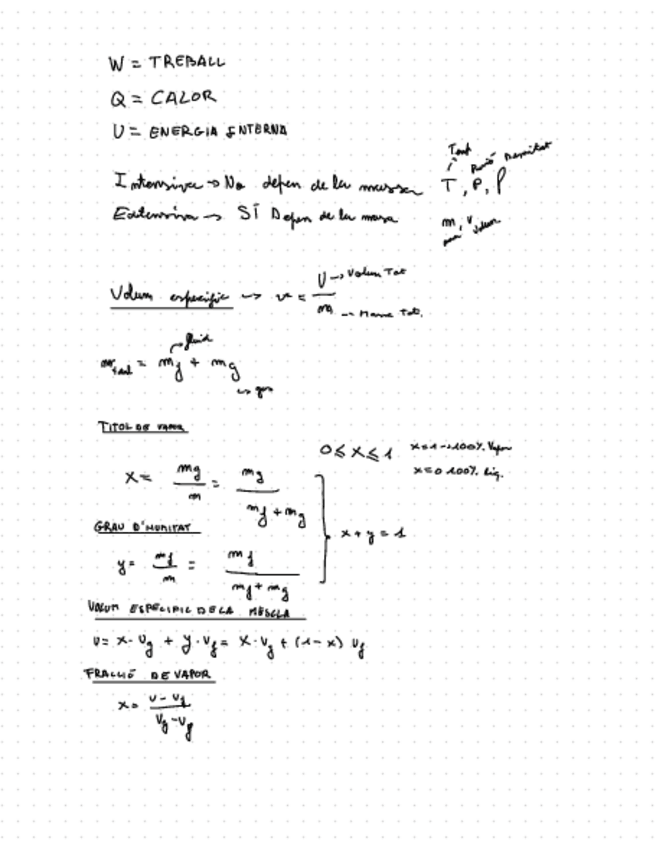 W = TREBALL
Q = CALOR
U = ENERGIA INTERNA
Intensiva → No depen de la massa T, P, ρ
Temp Pressió Densitat
Extensiva → SÍ Depen de la massa m, V
massa Volum
Volum especific → v = V / m
V → Volum Tot
m → Massa Tot.
m total = mf + mg
→ fluid
→ gas
TITOL DE VAPOR
0 ≤ x ≤ 1
x = 1 → 100% Vapor
x = 0 100% liq.
x = mg / m = mg / (mf + mg)
GRAU D'HUMITAT
x + y = 1
y = mf / m = mf / (mf + mg)
VOLUM ESPECIFIC DE LA MESCLA
v = x · vg + y · vf = x · vg + (1 - x) vf
FRACCIÓ DE VAPOR
x = (v - vf) / (vg - vf)